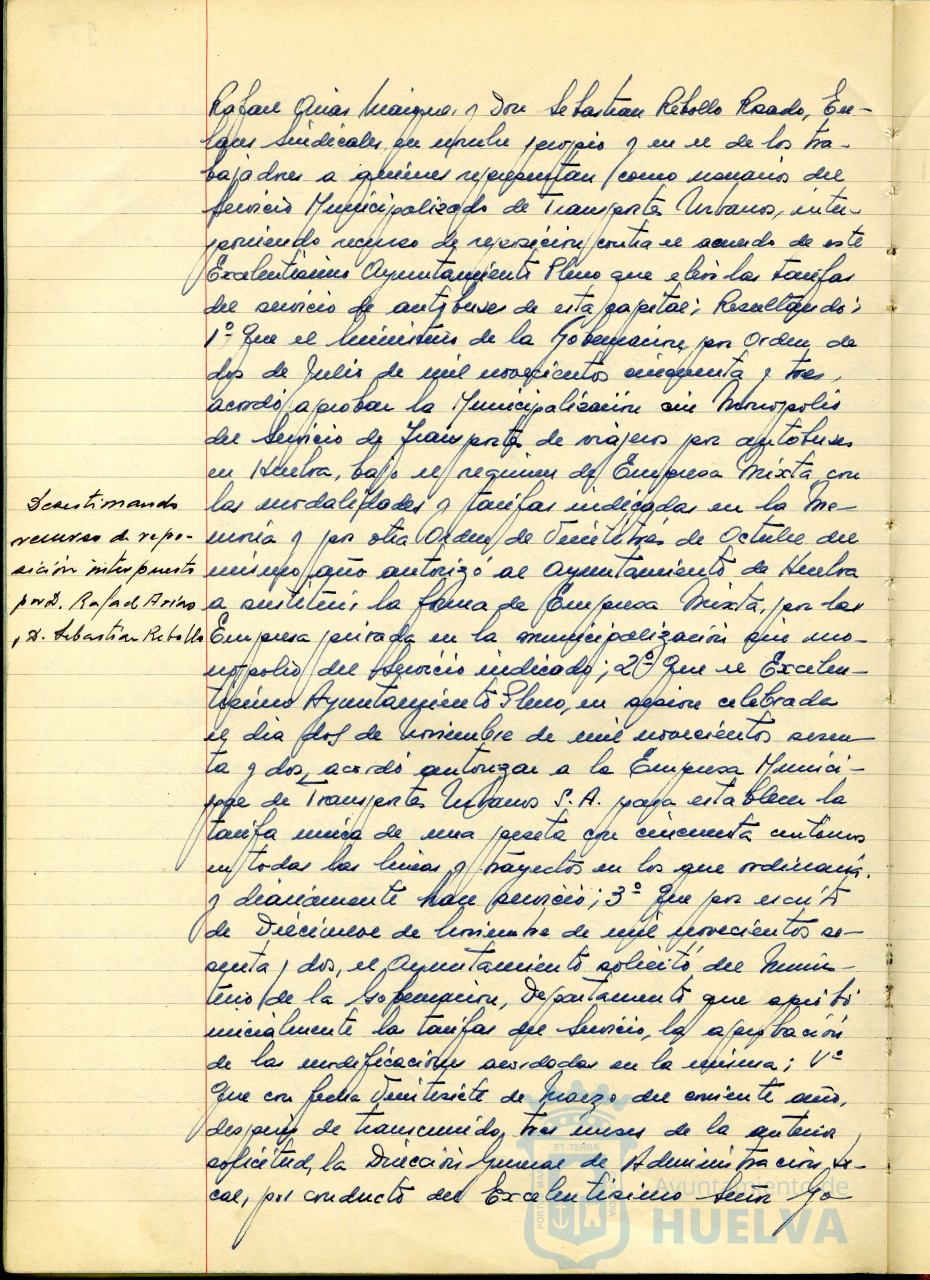 Rafael Arias Maique, y Don Sebastian Rebollo Rosado, En-
laces Sindicales, en nombre propio y en el de los tra-
bajadores a quienes representan, como usuarios del
Servicio Municipalizado de Transportes Urbanos, inter-
poniendo recurso de reposición contra el acuerdo de este
Excelentísimo Ayuntamiento Pleno que elevó las tarifas
del servicio de autobuses de esta capital; Resultando:
1º Que el Ministerio de la Gobernación, por Orden de
dos de Julio de mil novecientos cincuenta y tres,
acordó aprobar la Municipalización sin Monopolio
del Servicio de Transportes de viajeros por autobuses
en Huelva, bajo el regimen de Empresa Mixta con
las modalidades y tarifas indicadas en la Me-
moria y por otra Orden de Veintitrés de Octubre del
mismo año autorizó al Ayuntamiento de Huelva
a sustituir la forma de Empresa Mixta, por las
Empresa privada en la municipalización sin mo-
nopolio del Servicio indicado; 2º Que el Excelen-
tísimo Ayuntamiento Pleno, en sesión celebrada
el dia dos de noviembre de mil novecientos sesen-
ta y dos, acordó autorizar a la Empresa Munici-
pal de Transportes Urbanos S.A. para establecer la
tarifa unica de una peseta con cincuenta centimos
en todas las lineas y trayectos en los que ordinaria.
y diariamente hace servicio; 3º Que por escrito
de Diecinueve de Noviembre de mil novecientos se-
senta y dos, el Ayuntamiento solicitó del Minis-
terio de la Gobernación, Departamento que aprobó
inicialmente la tarifas del Servicio, la aprobación
de las modificaciones acordadas en la misma; 4º
Que con fecha Veintisiete de Marzo del corriente año,
despues de transcurrido, tres meses de la anterior
solicitud, la Dirección General de Administración Lo-
cal, por conducto del Excelentísimo Señor Go-
Desestimando
recurso de repo-
sición interpuesto
por D. Rafael Arias
y D. Sebastian Rebollo
Ayuntamiento de
HUELVA